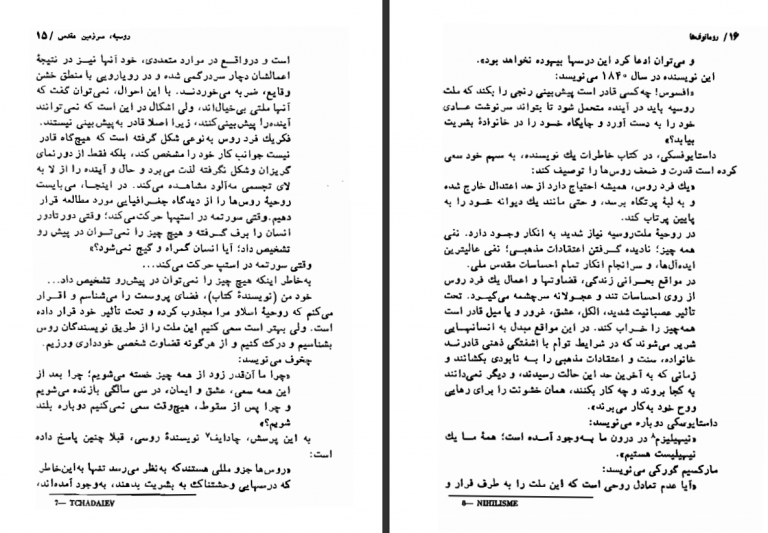 روسیه، سرزمین مقدس /۱۵
است و درواقع در موارد متعددی، خود آنها نیز در نتیجهٔ
اعمالشان دچار سردرگمی شده و در رویارویی با منطق خشن
وقایع، ضربه می‌خوردند. با این احوال، نمی‌توان گفت که
آنها ملتی بی‌خیال‌اند، ولی اشکال در این است که نمی‌توانند
آینده‌را پیش‌بینی‌کنند، زیرا اصلا قادر به‌پیش‌بینی نیستند.
فکریك فرد روس به‌نوعی شکل گرفته است که هیچ‌گاه قادر
نیست جوانب کار خود را مشخص کند، بلکه فقط از دورنمای
گریزان وشکل نگرفته لذت می‌برد و حال و آینده را از لا به
لای تجسمی مه‌آلود مشاهده می‌کند. در اینجا، می‌بایست
روحیهٔ روس‌ها را از دیدگاه جغرافیایی مورد مطالعه قرار
دهیم.وقتی سورتمه در استپها حرکت‌می‌کند؛ وقتی دورتادور
انسان را برف گرفته و هیچ چیز را نمی‌توان در پیش رو
تشخیص داد؛ آیا انسان گمراه و گیج نمی‌شود؟»
وقتی سورتمه در استپ حرکت می‌کند...
به‌خاطر اینکه هیچ چیز را نمی‌توان در پیش‌رو تشخیص داد...
خود من (نویسندهٔ کتاب)، فضای پروسعت را می‌شناسم و اقرار
می‌کنم که روحیهٔ اسلاو مرا مجذوب کرده و تحت تأثیر خود قرار داده
است. ولی بهتر است سعی کنیم این ملت را از طریق نویسندگان روس
بشناسیم و درک کنیم و از هرگونه قضاوت شخصی خودداری ورزیم.
چخوف می‌نویسد:
«چرا ما آن‌قدر زود از همه چیز خسته می‌شویم؛ چرا بعد از
این همه سعی، عشق و ایمان، در سی سالگی بازنده می‌شویم
و چرا پس از سقوط، هیچ‌وقت سعی نمی‌کنیم دوباره بلند
شویم؟»
به این پرسش، چادایف۷ نویسندهٔ روسی، قبلا چنین پاسخ داده
است:
«روس‌ها جزو مللی هستندکه به‌نظر می‌رسد تنها به‌این‌خاطر
که درسهایی وحشتناک به بشریت بدهند، به‌وجود آمده‌اند،
7— TCHADAIEV
۱۶/ رومانوف‌ها
و می‌توان ادعا کرد این درسها بیهوده نخواهد بود».
این نویسنده در سال ۱۸۴۰ می‌نویسد:
«افسوس! چه‌کسی قادر است پیش‌بینی رنجی را بکند که ملت
روسیه باید در آینده متحمل شود تا بتواند سرنوشت عادی
خود را به دست آورد و جایگاه خود را در خانوادهٔ بشریت
بیابد؟»
داستایوفسکی، در کتاب خاطرات یك نویسنده، به سهم خود سعی
کرده است قدرت و ضعف روس‌ها را توصیف کند:
«یك فرد روس، همیشه احتیاج دارد از حد اعتدال خارج شده
و به لبهٔ پرتگاه برسد، و حتی مانند یك دیوانه خود را به
پایین پرتاب کند.
در روحیهٔ ملت‌روسیه نیاز شدید به انکار وجود دارد. نفی
همه چیز؛ نادیده گرفتن اعتقادات مذهبی؛ نفی عالیترین
ایده‌آل‌ها، و سرانجام انکار تمام احساسات مقدس ملی.
در مواقع بحرانی زندگی، قضاوتها و اعمال یك فرد روس
از روی احساسات تند و عجولانه سرچشمه می‌گیرد. تحت
تأثیر عصبانیت شدید، الکل، عشق، غرور و یا میل قادر است
همه‌چیز را خراب کند. در این مواقع مبدل به انسانهایی
شریر می‌شوند که در شرایط توأم با آشفتگی ذهنی قادرند
خانواده، سنت و اعتقادات مذهبی را به نابودی بکشانند و
زمانی که به آخرین حد این حالت رسیدند، و دیگر نمی‌دانند
به کجا بروند و چه کار بکنند، همان خشونت را برای رهایی
روح خود به‌کار می‌برند».
داستایوسکی دوباره می‌نویسد:
«نیهیلیزم۸ در درون ما به‌وجود آمده است؛ همهٔ ما یك
نیهیلیست هستیم».
مارکسیم گورکی می‌نویسد:
«آیا عدم تعادل روحی است که این ملت را به طرف قرار و
8— NIHILISME